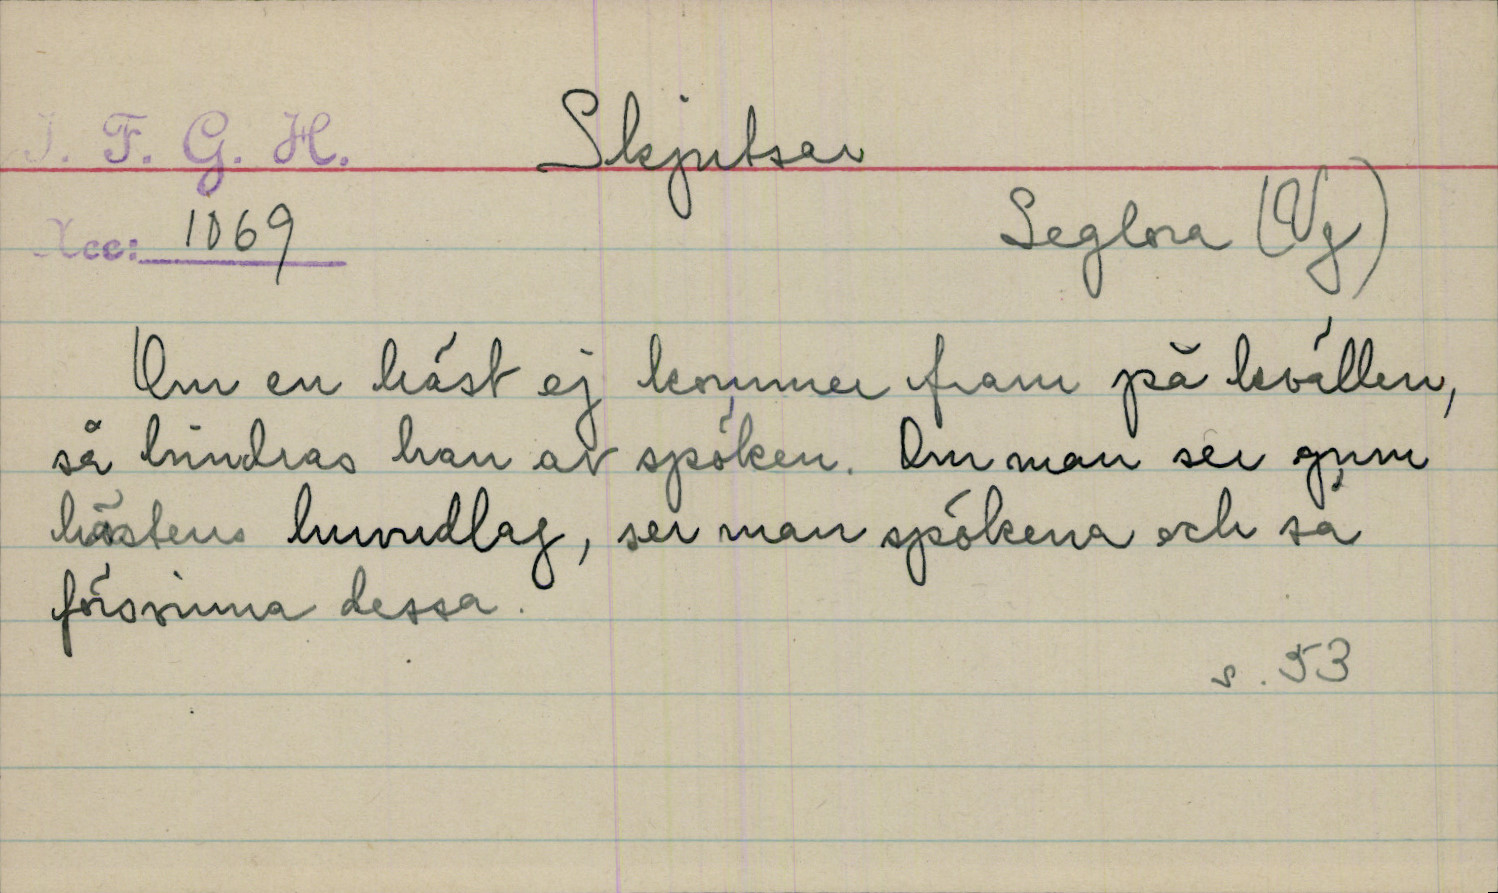 I. F. G. H.
Skjutsar
Acc: 1069
Seglora (Vg)
Om en häst ej kommer fram på kvällen,
så hindras han av spöken. Om man ser gnm
hästens huvudlag, ser man spökena och så
försvinna dessa.
s. 53